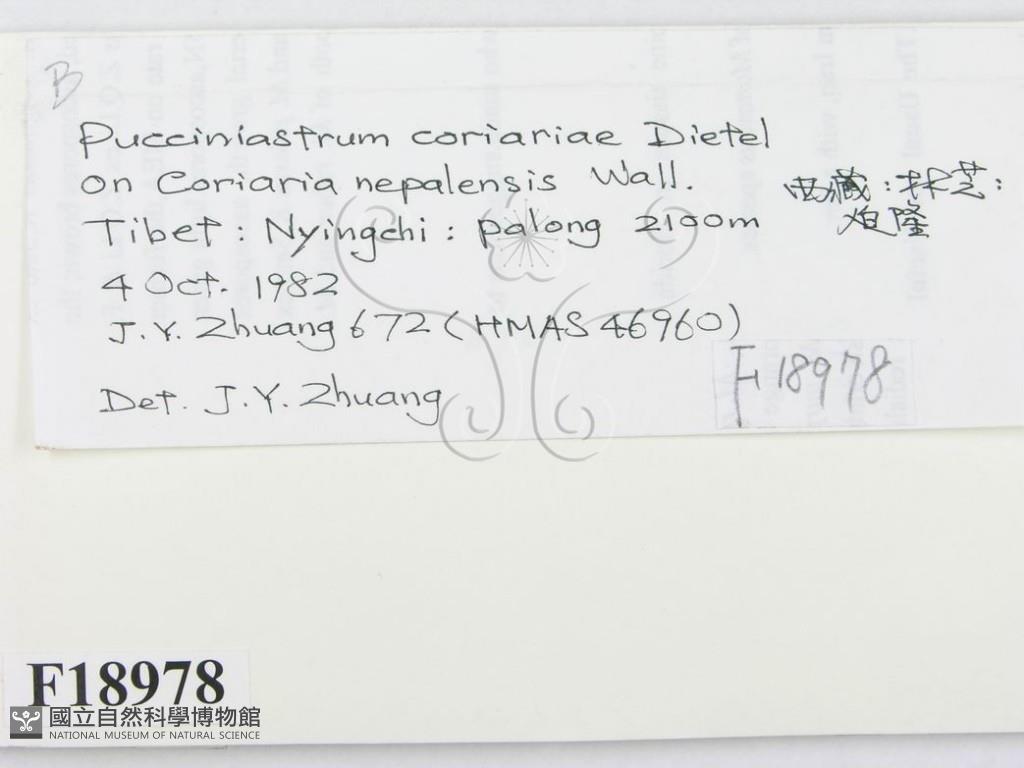 B
Pucciniastrum coriariae Dietel
on Coriaria nepalensis Wall.
Tibet: Nyingchi: palong 2100m
西藏:林芝:
炮隆
4 Oct. 1982
J.Y. Zhuang 672 (HMAS 46960)
Det. J.Y. Zhuang
F18978
F18978
國立自然科學博物館
NATIONAL MUSEUM OF NATURAL SCIENCE